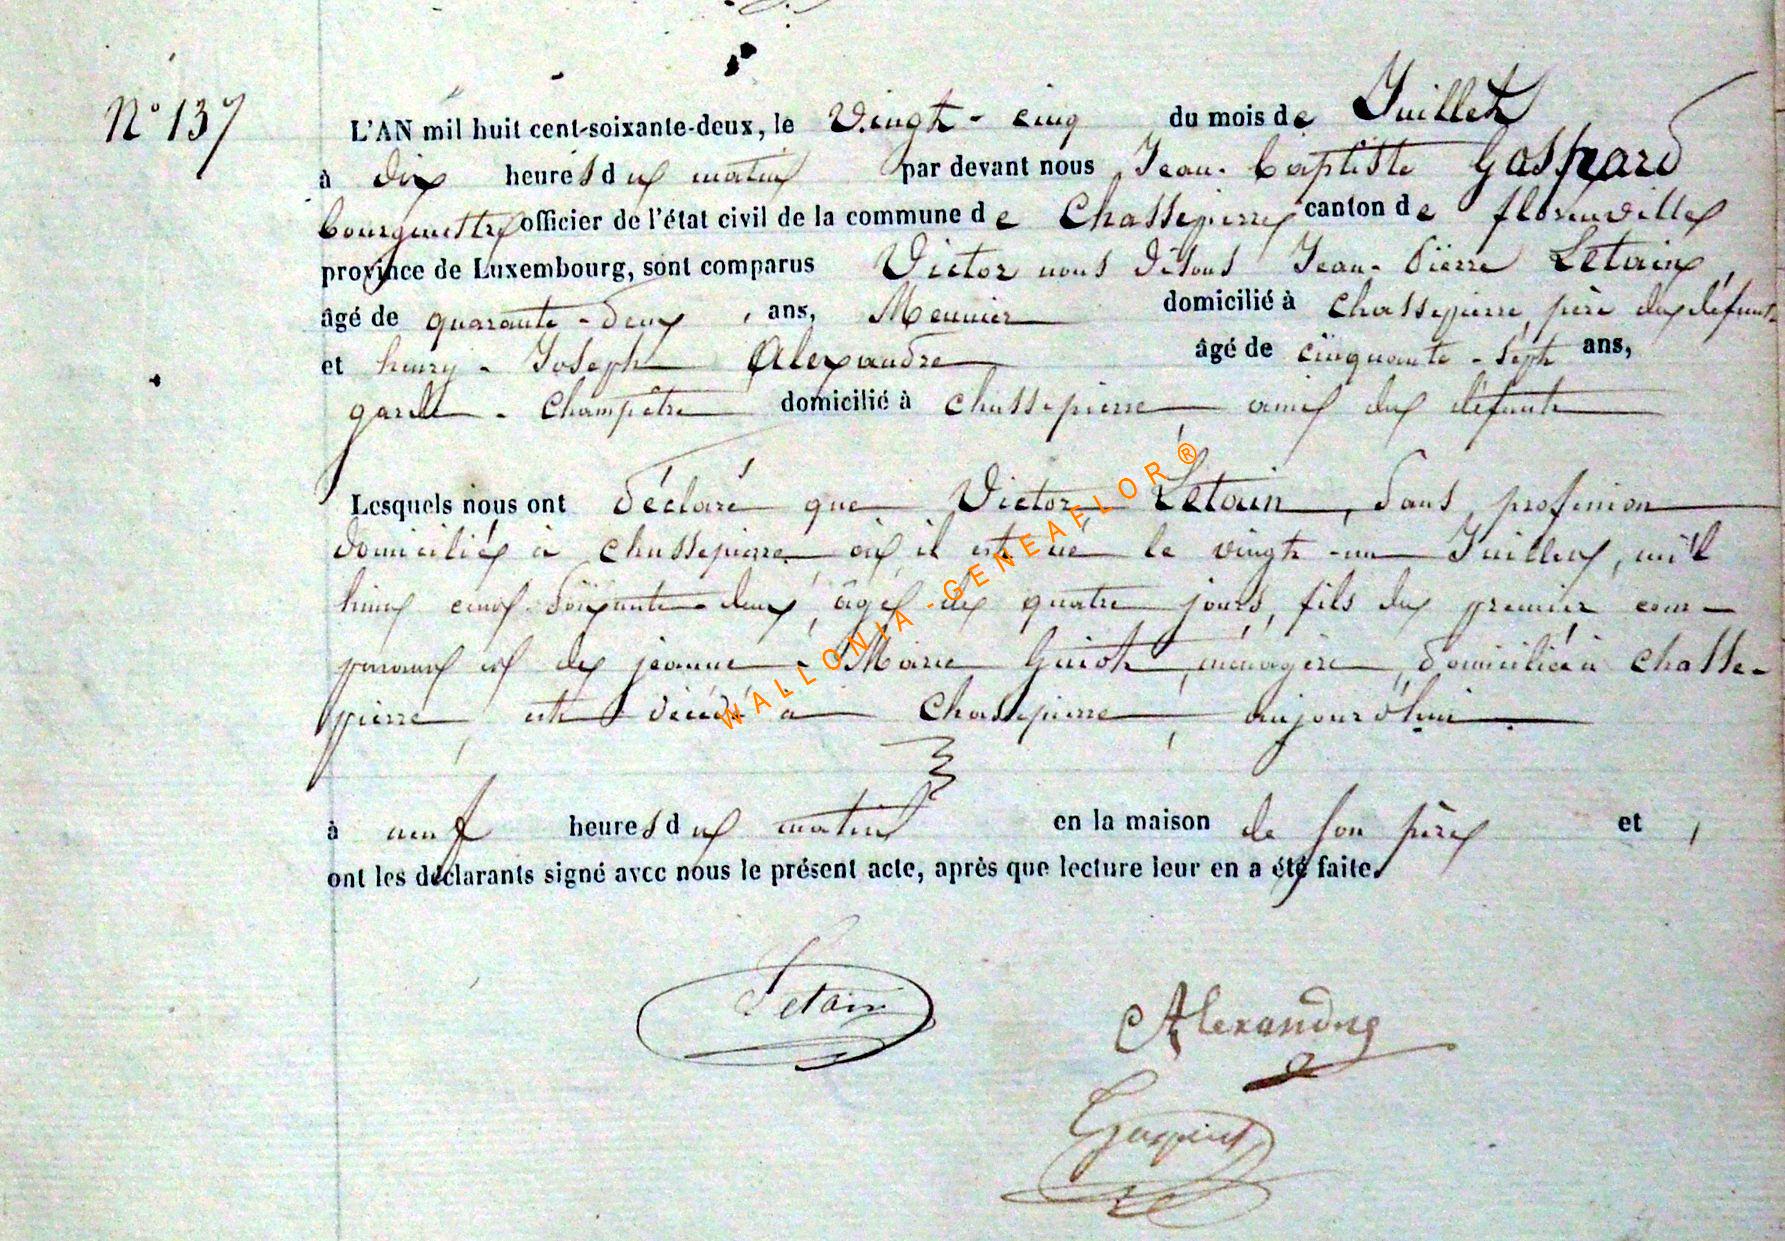 N° 137
L'AN mil huit cent-soixante-deux, le Vingt-cinq du mois de Juillet
à dix heures du matin par devant nous Jean-baptiste Gaspard
bourgmestre officier de l'état civil de la commune de Chassepierre canton de florenville
province de Luxembourg, sont comparus Victor nous disons Jean-Pierre Letain,
âgé de quarante-deux ans, Meunier domicilié à chassepierre, père du défunt
et henry-Joseph Alexandre âgé de cinquante-sept ans,
garde-Champêtre domicilié à chassepierre ami du défunt
Lesquels nous ont déclaré que Victor Letain, sans profession
domicilié à chassepierre, où il est né le vingt-un Juillet, mil
huit cent soixante-deux, âgé de quatre jours, fils du premier com-
parant et de jeanne-Marie Guiot, ménagère, domiciliée à Chasse-
pierre, est décédé à Chassepierre, aujourd'hui
à neuf heures du matin en la maison de son père et
ont les déclarants signé avec nous le présent acte, après que lecture leur en a été faite.
WALLONIA-GENEAFLOR®
Letain
Alexandre
Gaspard